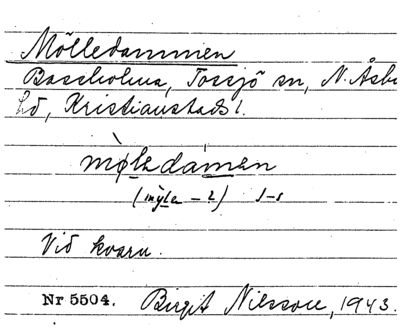 Mölledammen
Bassholma, Tossjö sn, N. Åsbo
hd, Kristianstads l.
mø̀ledámen
(mỳle – 2) s–s
Vid kvarn.
Nr 5504. Birgit Nilsson, 1943.